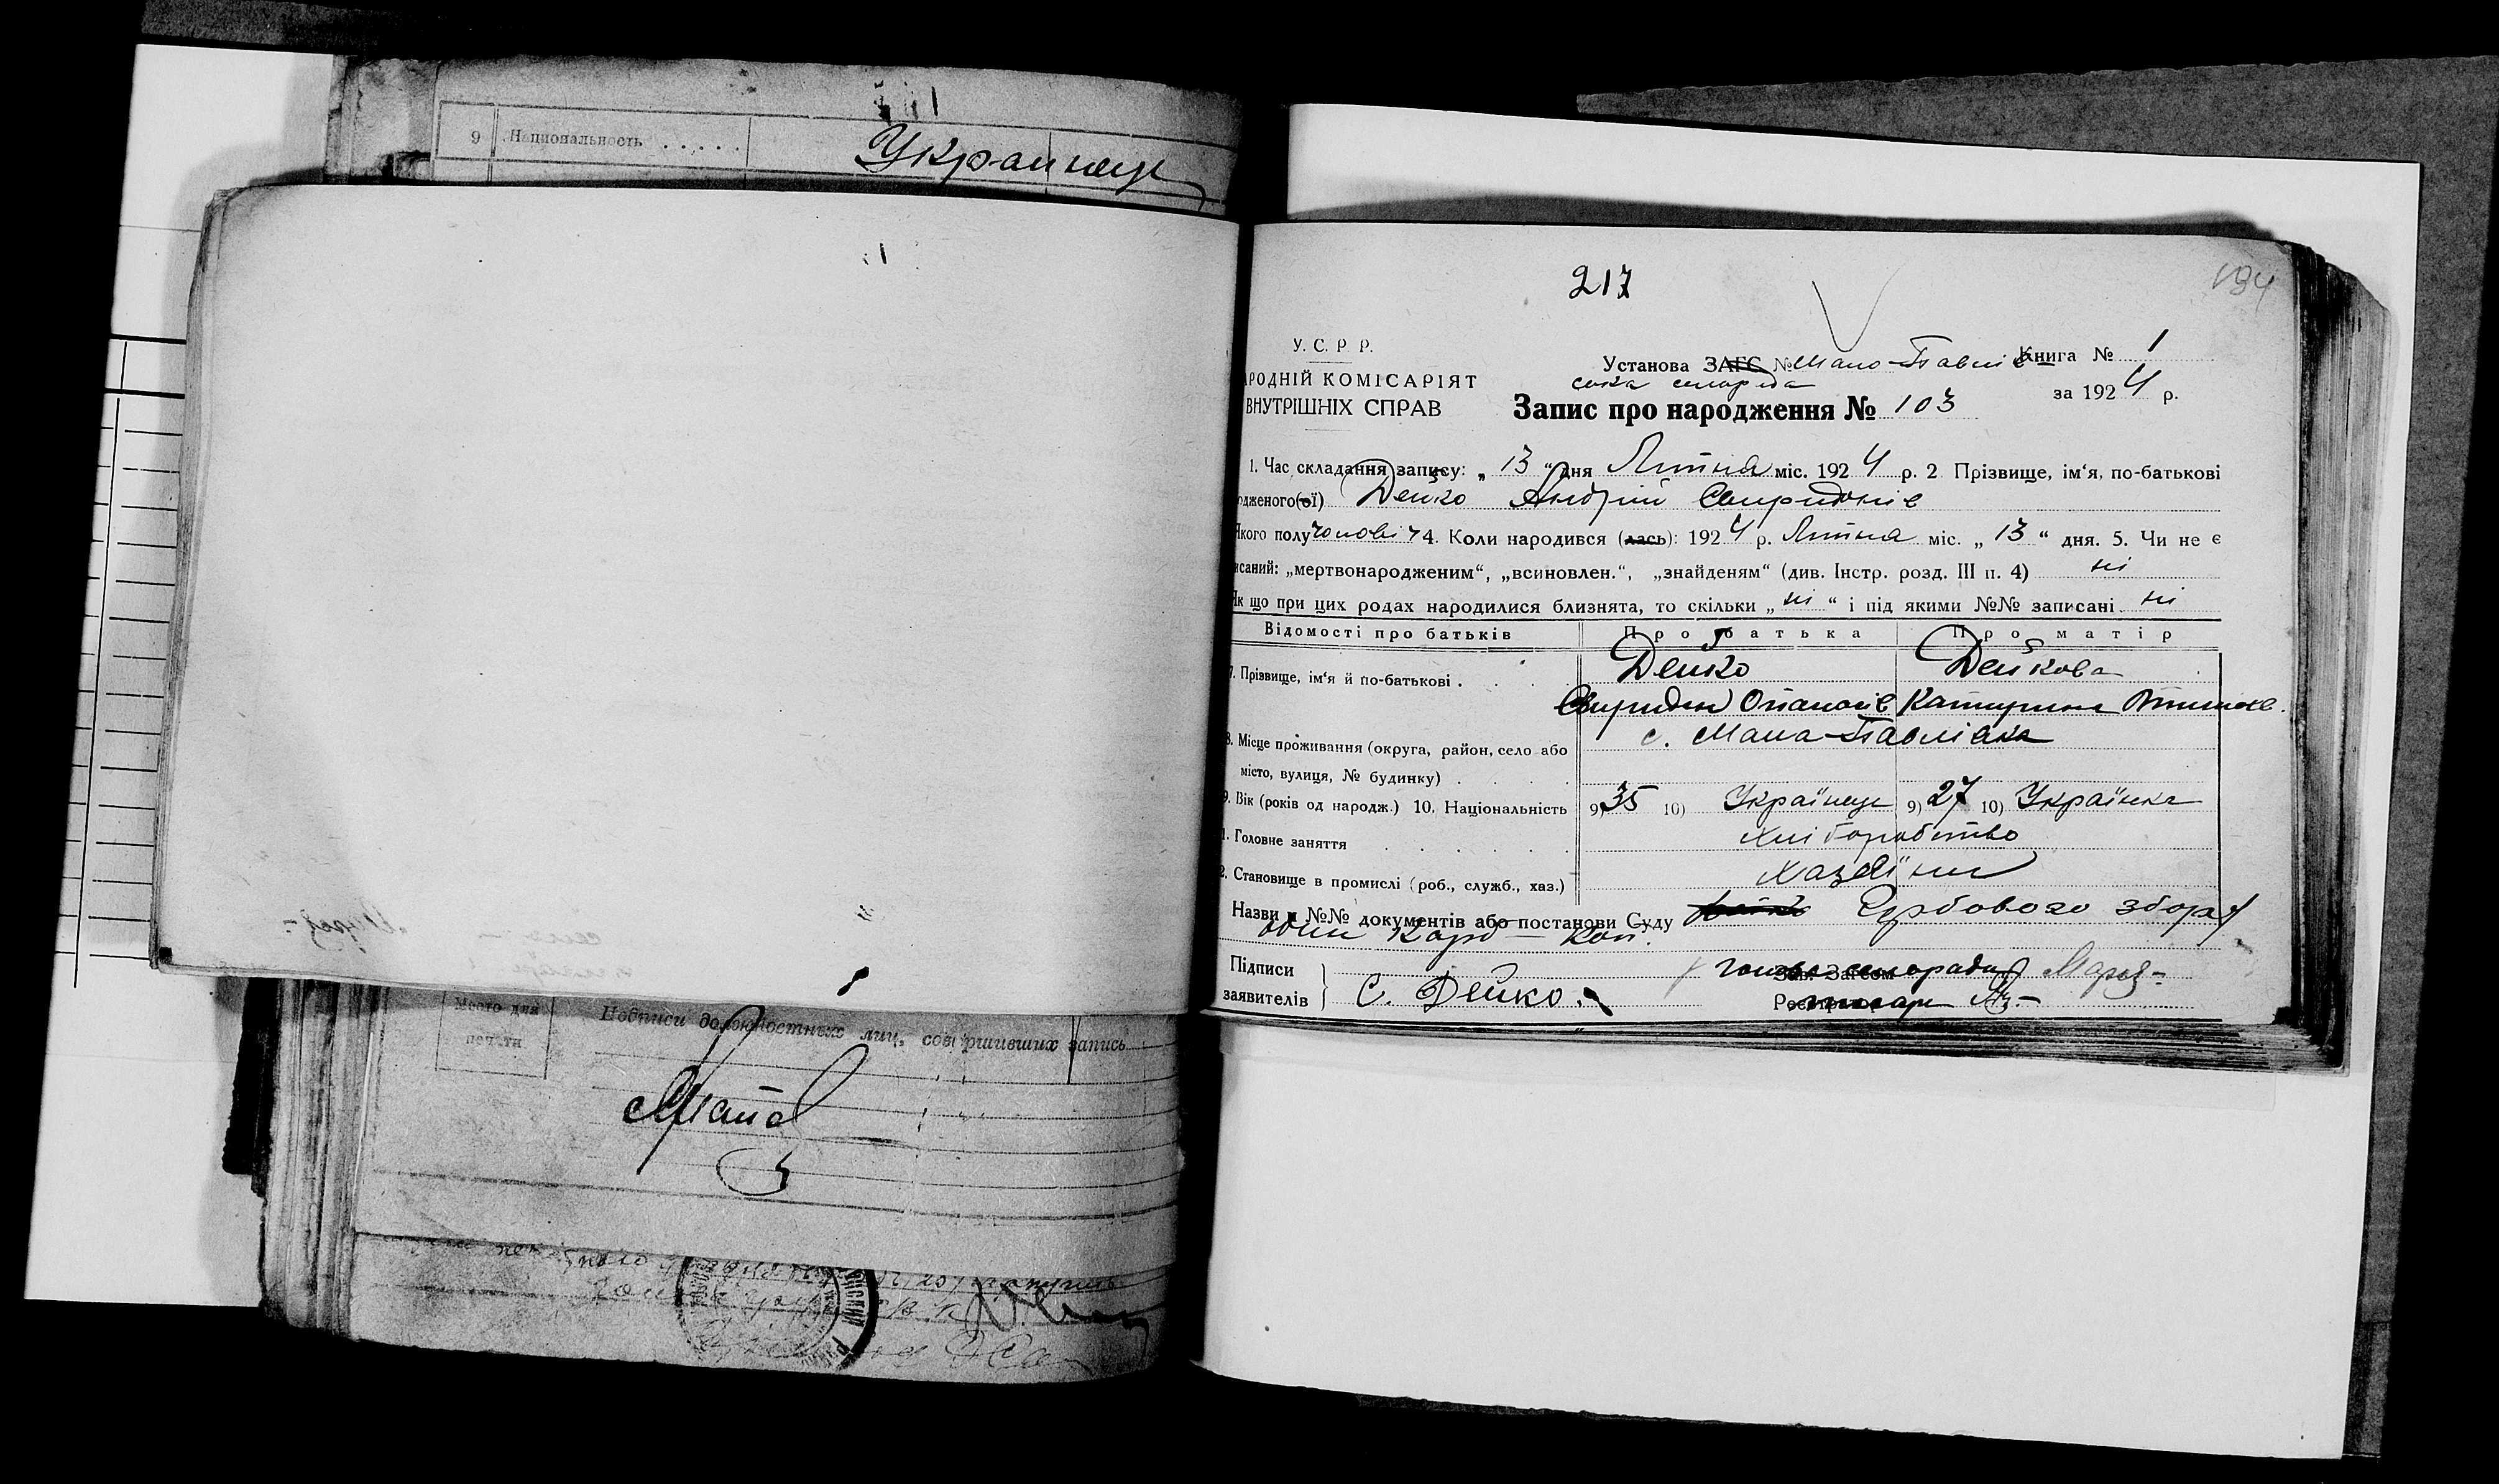 9 Национальность . . . . .
Украинец
217
194
У. С. Р. Р.
РОДНІЙ КОМІСАРІЯТ
ВНУТРІШНІХ СПРАВ
Установа ЗАГС № Мало-Павлів
ська сельрада
Книга № 1
за 1924 р.
Запис про народження № 103
1. Час складання запису: „13“ дня Липня міс. 1924 р. 2 Прізвище, ім‘я, по-батькові
одженого(ої) Дейко Андрій Свиридонів
Якого полу чолові 4. Коли народився (лась): 1924 р. Липня міс. „13“ дня. 5. Чи не є
исаний: „мертвонародженим“, „всиновлен.“, „знайденям“ (див. Інстр. розд. III п. 4) ні
Як що при цих родах народилися близнята, то скільки „ні“ і під якими №№ записані ні
Відомості про батьків Про батька Про матір
7. Прізвище, ім‘я й по-батькові . Дейко Дейкова
Свиридон Опанасів Катерина
8. Місце проживання (округа, район, село або с. Мала-Павлівка
місто, вулиця, № будинку)
9. Вік (років од народж.) 10. Національність 9) 35 10) Українець 9) 27 10) Українка
1. Головне заняття Хліборобство
2. Становище в промислі (роб., служб., хаз.) Хазяїни
Назви й №№ документів або постанови Суду Гербового збору
один карб — коп.
Підписи
заявителів
С. Дейко
Зав. Загсом голова сельради
писарь
Место для
печати
Подписи должностных лиц, совершивших запись